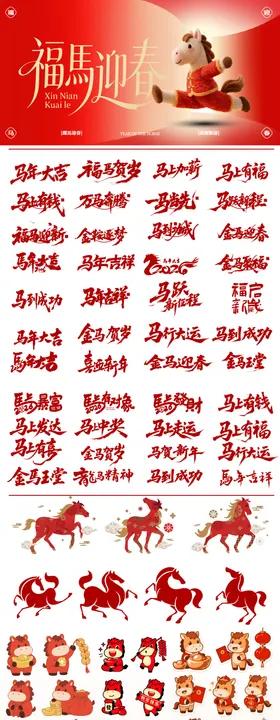 福 迎
福馬迎春
Xin Nian
Kuai le
马 春
YEAR OF THE HORSE
马年大吉 福马贺岁 马上加薪 马上有福
马上有钱 万马奔腾 一马当先 马跃新程
福马迎新 金鞍逐梦 马到功成 金马迎春
馬年大吉 马年吉祥 2026 金马聚福
马到成功 马年吉祥 马跃新征程 福启新岁
马年大吉 金马贺岁 马行大运 马到成功
馬年大吉 喜迎新年 金马迎春 金马玉堂
馬上暴富 馬上有对象 馬上發財 马上有钱
马上发达 马上中奖 马上走运 马上有福
马上有喜 金马贺岁 马贺新年 马行大运
金马玉堂 龙马精神 马到成功 馬年吉祥